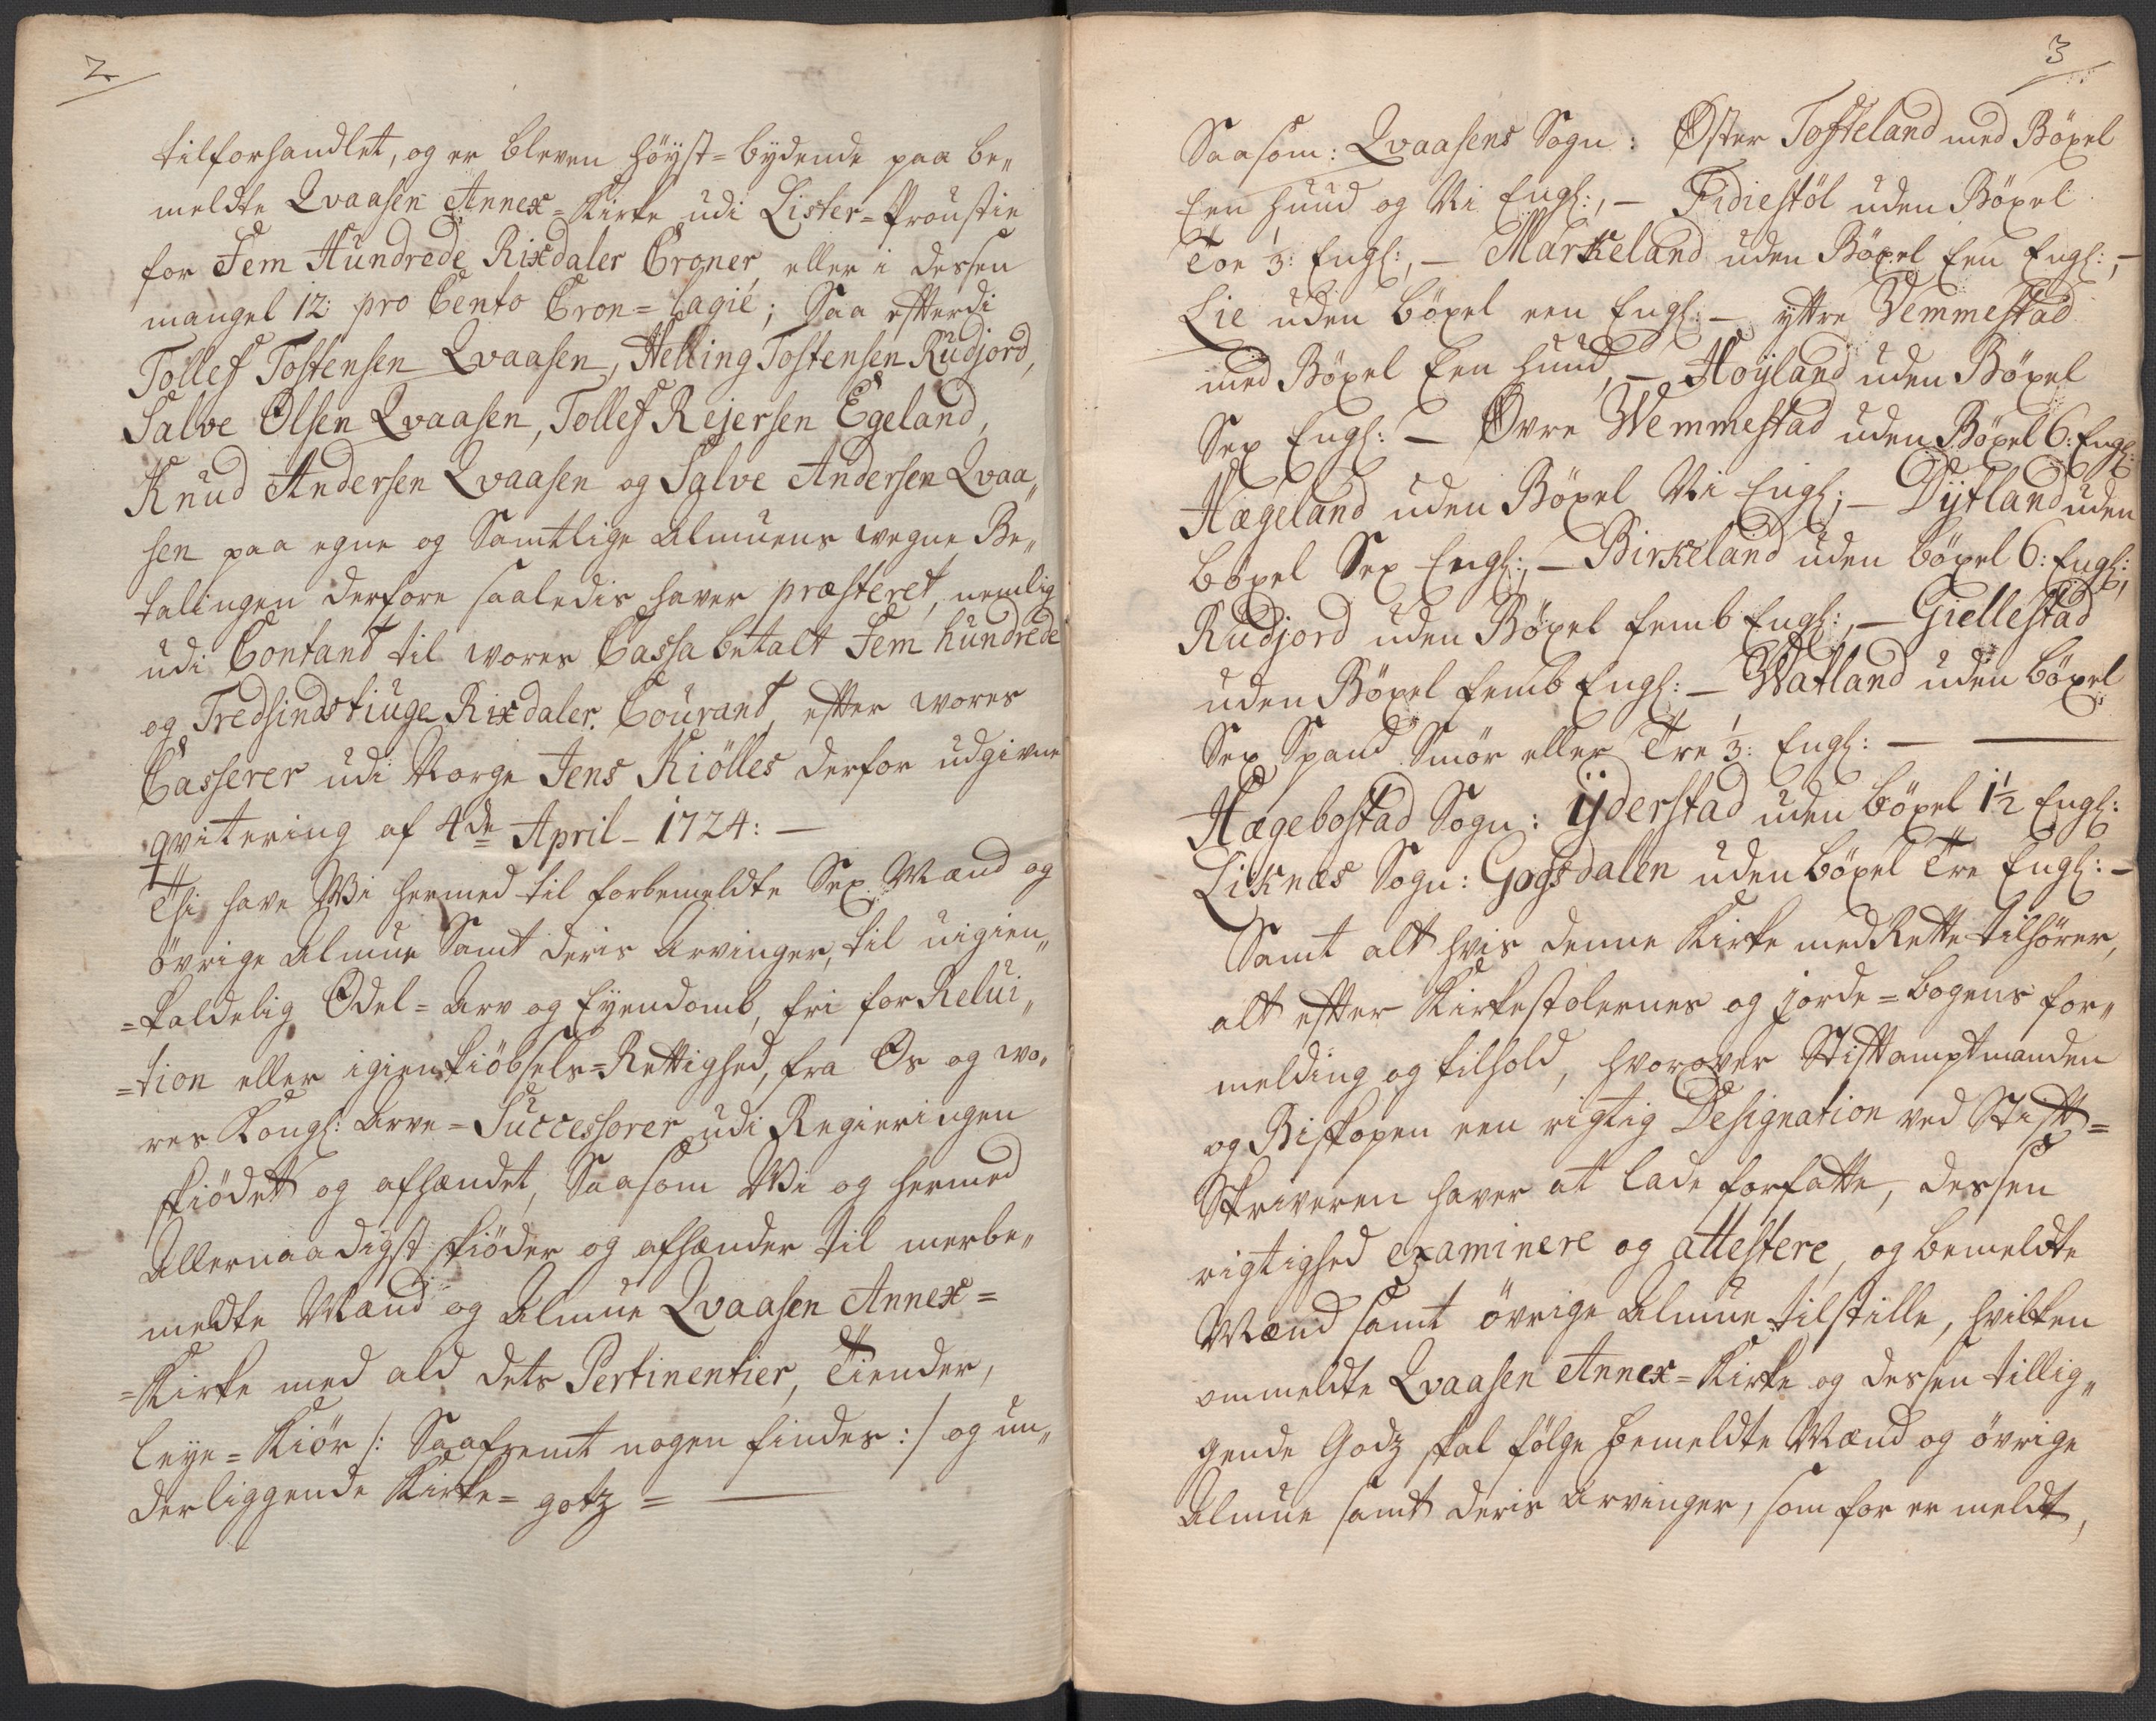 2
tilforhandlet, og er bleven höyst=bydende paa be„
meldte Qvaasen Annex=Kirke udi Lister=Proustie
for Fem Hundrede Rixdaler Croner, eller i dessen
mangel 12: pro Cento Cron=lagie; Saa efterdi
Tollef Tostensen Qvaasen, Helling Tostensen Rudjord,
Salve Olsen Qvaasen, Tollef Rejersen Egeland,
Knud Andersen Qvaasen og Salve Andersen Qvaa„
sen paa egne og Samtlige Almuens wegne Be„
talingen derfore saaledis haver præsteret, nemlig
udi Contant til wores Cassa betalt Fem hundrede
og Tredsindstiuge Rixdaler Courant, efter wores
Casserer udi Norge Jens Kiölles derfor udgivne
qvitering af 4de April 1724: —
Thi have Wi hermed til forbemeldte Sex Mænd og
övrige Almue Samt deris Arvinger, til uigien„
=kaldelig Odel=Arv og Eyendomb, fri for Relui„
=tion eller igienkiöbsels=Rettighed, fra Os og wo„
res Kongl: Arve=Successorer udi Regieringen
skiödet og afhændet, Saasom Wi og hermed
Allernaadigst skiöder og afhænder til merbe„
meldte Mænd og Almue Qvaasen Annex=
=Kirke med ald dets Pertinentier, Tiender,
leye=Kiör /: Saafremt nogen findes :/ og un„
derliggende Kirke=gotz = —
3
Saasom: Qvaasens Sogn: Øster Tofteland med Böxel
Een huud og Ni Engl:, — Fidiestöl uden Böxel
Toe 3: Engl:, — Markeland uden Böxel Een Engl:, —
Lie uden böxel een Engl: — yttre Vemmestad
med Böxel Een huud, — Høyland uden Böxel
Sex Engl: — Øvre Wemmestad uden Böxel 6: Engl:
Hægeland uden Böxel Ni Engl; — Dytland uden
böxel Sex Engl:, — Birkeland uden böxel 6: Engl:,
Rudjord uden Böxel femb Engl:, — Giellestad
uden Böxel femb Engl: — Watland uden böxel
Sex Spand Smör eller Tre 3: Engl: — —
Hægebostad Sogn: ÿderstad uden böxel 1½ Engl:
Liknæs Sogn: Gogsdalen uden böxel Tre Engl: —
Samt alt hvis denne Kirke med Rette tilhører,
alt efter Kirkestolernes og jorde=bogens for„
melding og tilhold, hvorover Stiftamptmanden
og Biskopen een rigtig Designation ved Stift=
Skriveren haver at lade forfatte, dessen
rigtighed examinere og attestere, og bemeldte
Mænd samt övrige Almue tilstille, hvilken
ommeldte Qvaasen Annex=Kirke og dessen tillig„
gende Godz skal fölge bemeldte Mænd og övrige
Almue samt deris Arvinger, som for er meldt,